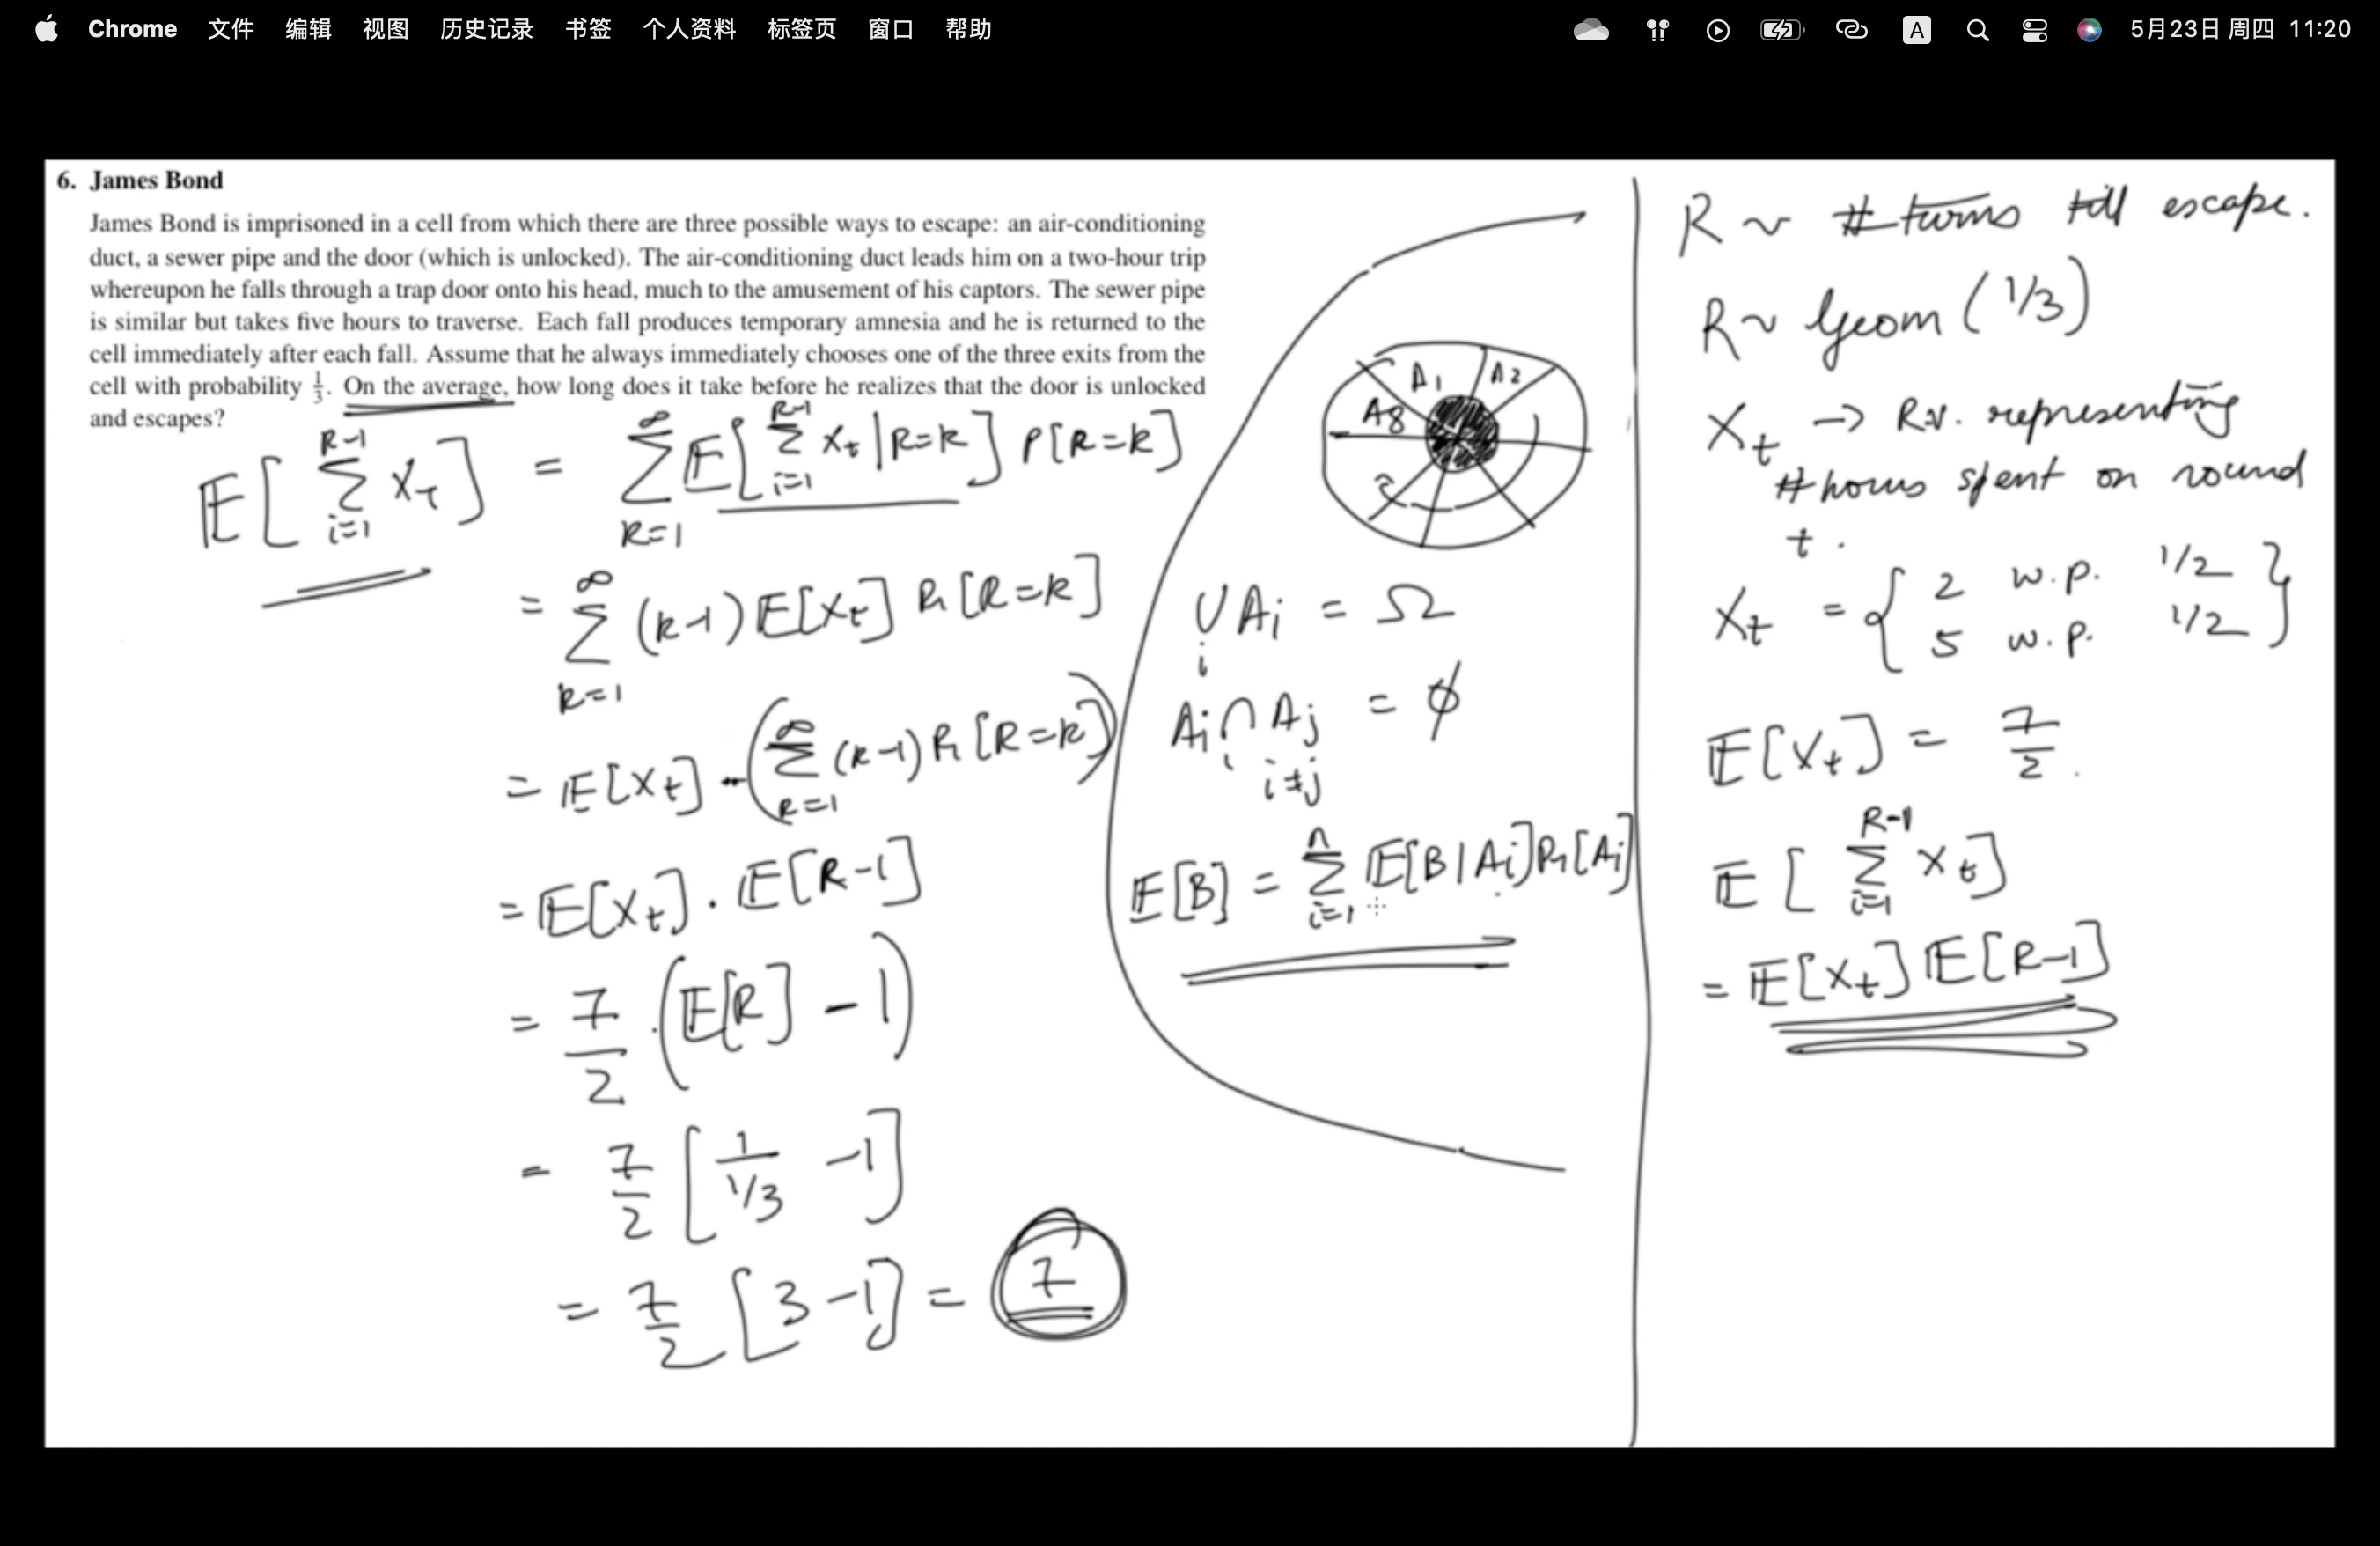 Chrome 文件 编辑 视图 历史记录 书签 个人资料 标签页 窗口 帮助 A 5月23日 周四 11:20
6. James Bond
James Bond is imprisoned in a cell from which there are three possible ways to escape: an air-conditioning
duct, a sewer pipe and the door (which is unlocked). The air-conditioning duct leads him on a two-hour trip
whereupon he falls through a trap door onto his head, much to the amusement of his captors. The sewer pipe
is similar but takes five hours to traverse. Each fall produces temporary amnesia and he is returned to the
cell immediately after each fall. Assume that he always immediately chooses one of the three exits from the
cell with probability 1/3. On the average, how long does it take before he realizes that the door is unlocked
and escapes?
E[∑_{i=1}^{R-1} X_t] = ∑_{k=1}^{∞} E[∑_{i=1}^{R-1} X_t | R=k] P[R=k]
= ∑_{k=1}^{∞} (k-1) E[X_t] Pr[R=k]
= E[X_t] · (∑_{k=1}^{∞} (k-1) Pr[R=k])
= E[X_t] · E[R-1]
= 7/2 · (E[R] - 1)
= 7/2 [1/(1/3) - 1]
= 7/2 [3 - 1] = 7
A1 A2
A8
∪_i Ai = Ω
Ai ∩ Aj = ϕ
i≠j
E[B] = ∑_{i=1}^{n} E[B|Ai] Pr[Ai]
R ~ # turns till escape.
R ~ Geom (1/3)
X_t → R.v. representing
# hours spent on round
t.
X_t = { 2 w.p. 1/2
5 w.p. 1/2 }
E[X_t] = 7/2.
E[∑_{i=1}^{R-1} X_t]
= E[X_t] E[R-1]